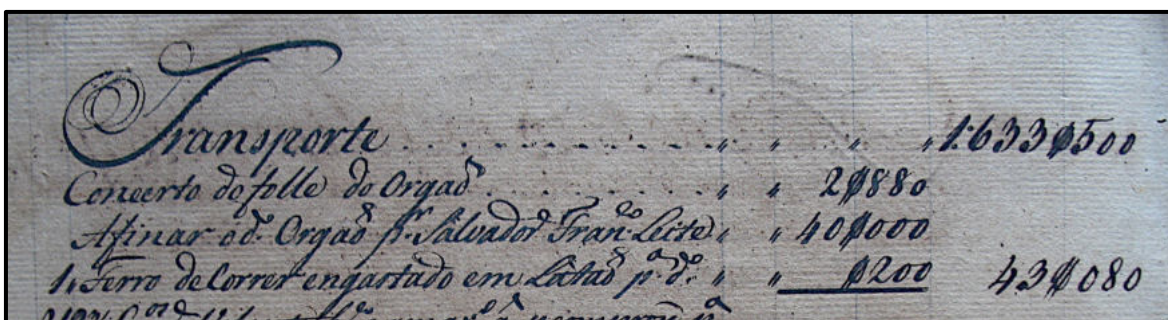 Transporte . . . . . . . . . . " " " " 1:633$500
Concerto do folle do Orgaõ . . . . . . . . " " 2$880
Afinar o d.º Orgaõ p.r Salvador Fran.co Leite " " 40$000
1 " Ferro de Correr engastado em Lataõ p.a d.º " " $200 43$080